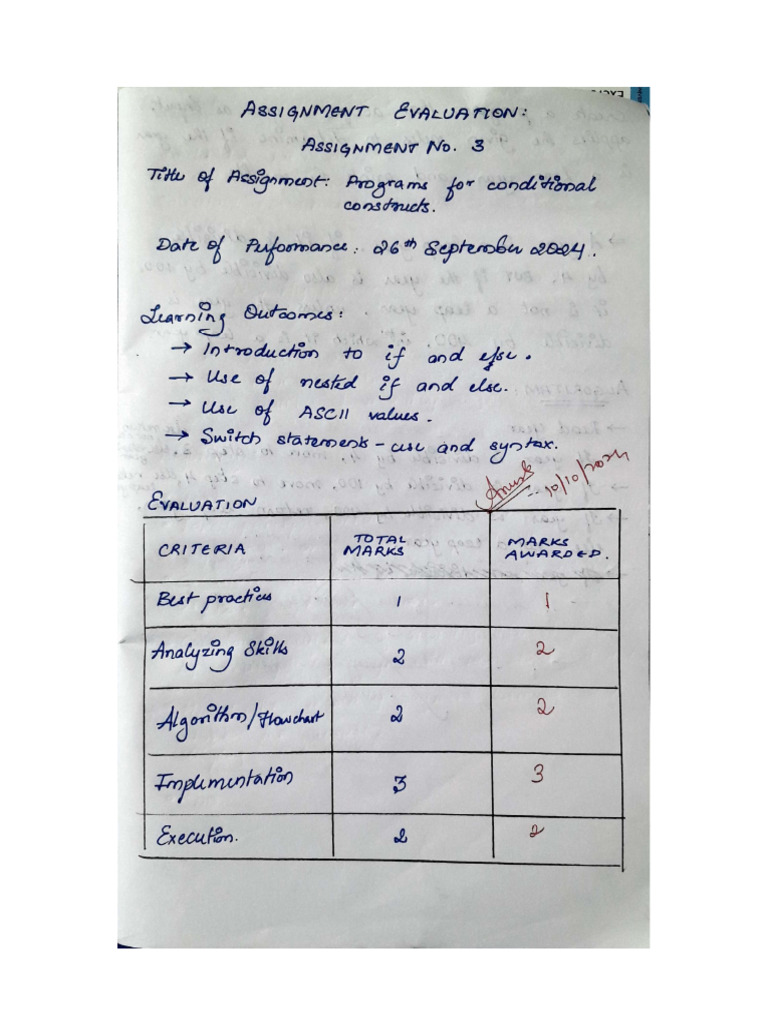 ASSIGNMENT EVALUATION:
ASSIGNMENT NO. 3
Title of Assignment: Programs for conditional
constructs.
Date of Performance: 26th September 2024.
Learning Outcomes:
→ Introduction to if and else.
→ Use of nested if and else.
→ Use of ASCII values.
→ Switch statements - use and syntax.
10/10/2024
EVALUATION
CRITERIA TOTAL MARKS MARKS AWARDED.
Best practices 1 1
Analyzing Skills 2 2
Algorithm/Flowchart 2 2
Implementation 3 3
Execution. 2 2